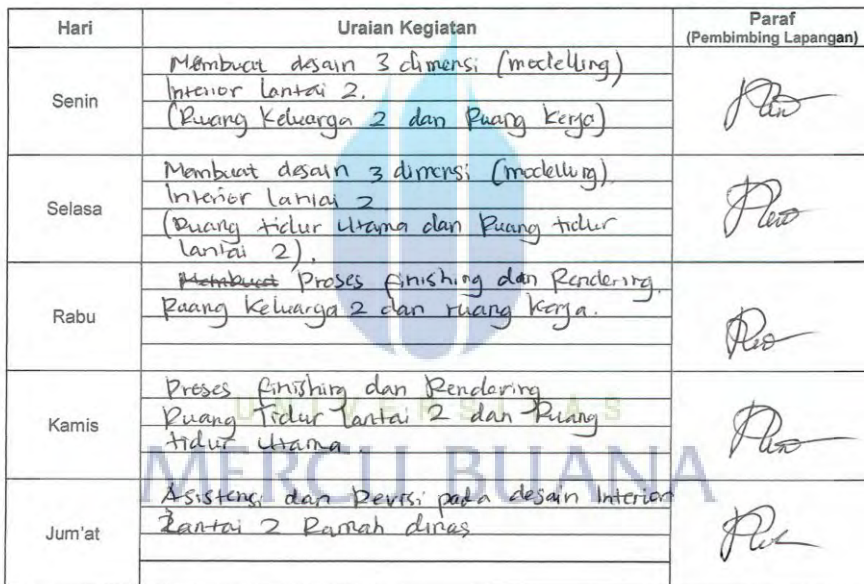 Hari Uraian Kegiatan Paraf
(Pembimbing Lapangan)
Senin
Membuat desain 3 dimensi (modelling)
Interior lantai 2.
(Ruang Keluarga 2 dan Ruang Kerja)
Selasa
Membuat desain 3 dimensi (modelling)
Interior lantai 2
(Ruang tidur Utama dan Ruang tidur
lantai 2).
Rabu
Membuat Proses finishing dan Rendering.
Ruang Keluarga 2 dan ruang Kerja.
Kamis
Proses finishing dan Rendering
Ruang Tidur lantai 2 dan Ruang
tidur Utama.
Jum'at
Asistensi dan Revisi pada desain Interior
Lantai 2 Rumah dinas
UNIVERSITAS
MERCU BUANA